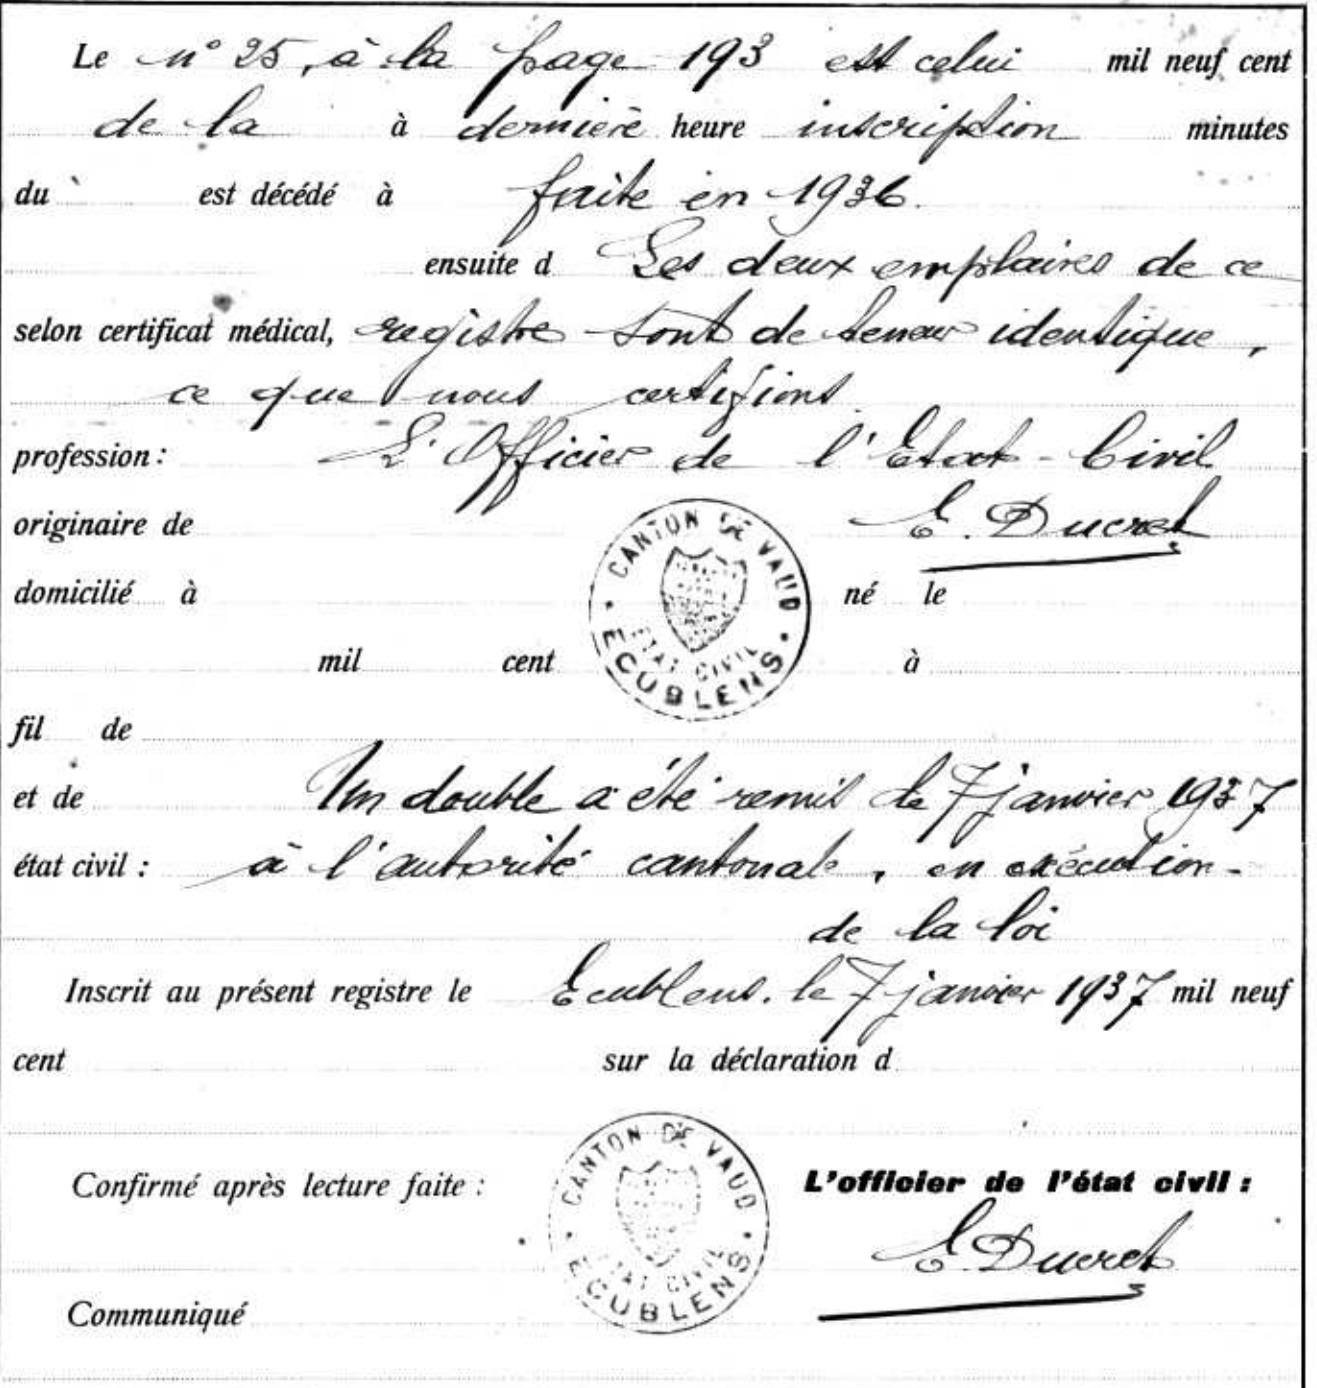 Le n° 25, à la page 193 est celui mil neuf cent
de la à dernière heure inscription minutes
du est décédé à faite en 1936.
ensuite d Les deux emplaires de ce
selon certificat médical, registre sont de teneur identique,
ce que nous certifions.
profession: L'Officier de l'Etat-Civil
originaire de E. Ducret
CANTON DE VAUD
domicilié à né le
mil cent à
ETAT CIVIL
ECUBLENS
fil de
et de Un double a été remis le 7 janvier 1937
état civil: à l'autorité cantonale, en exécution-
de la loi
Inscrit au présent registre le Ecublens. le 7 janvier 1937 mil neuf
cent sur la déclaration d
CANTON DE VAUD
Confirmé après lecture faite: L'officier de l'état civil:
ETAT CIVIL
ECUBLENS
E. Ducret
Communiqué